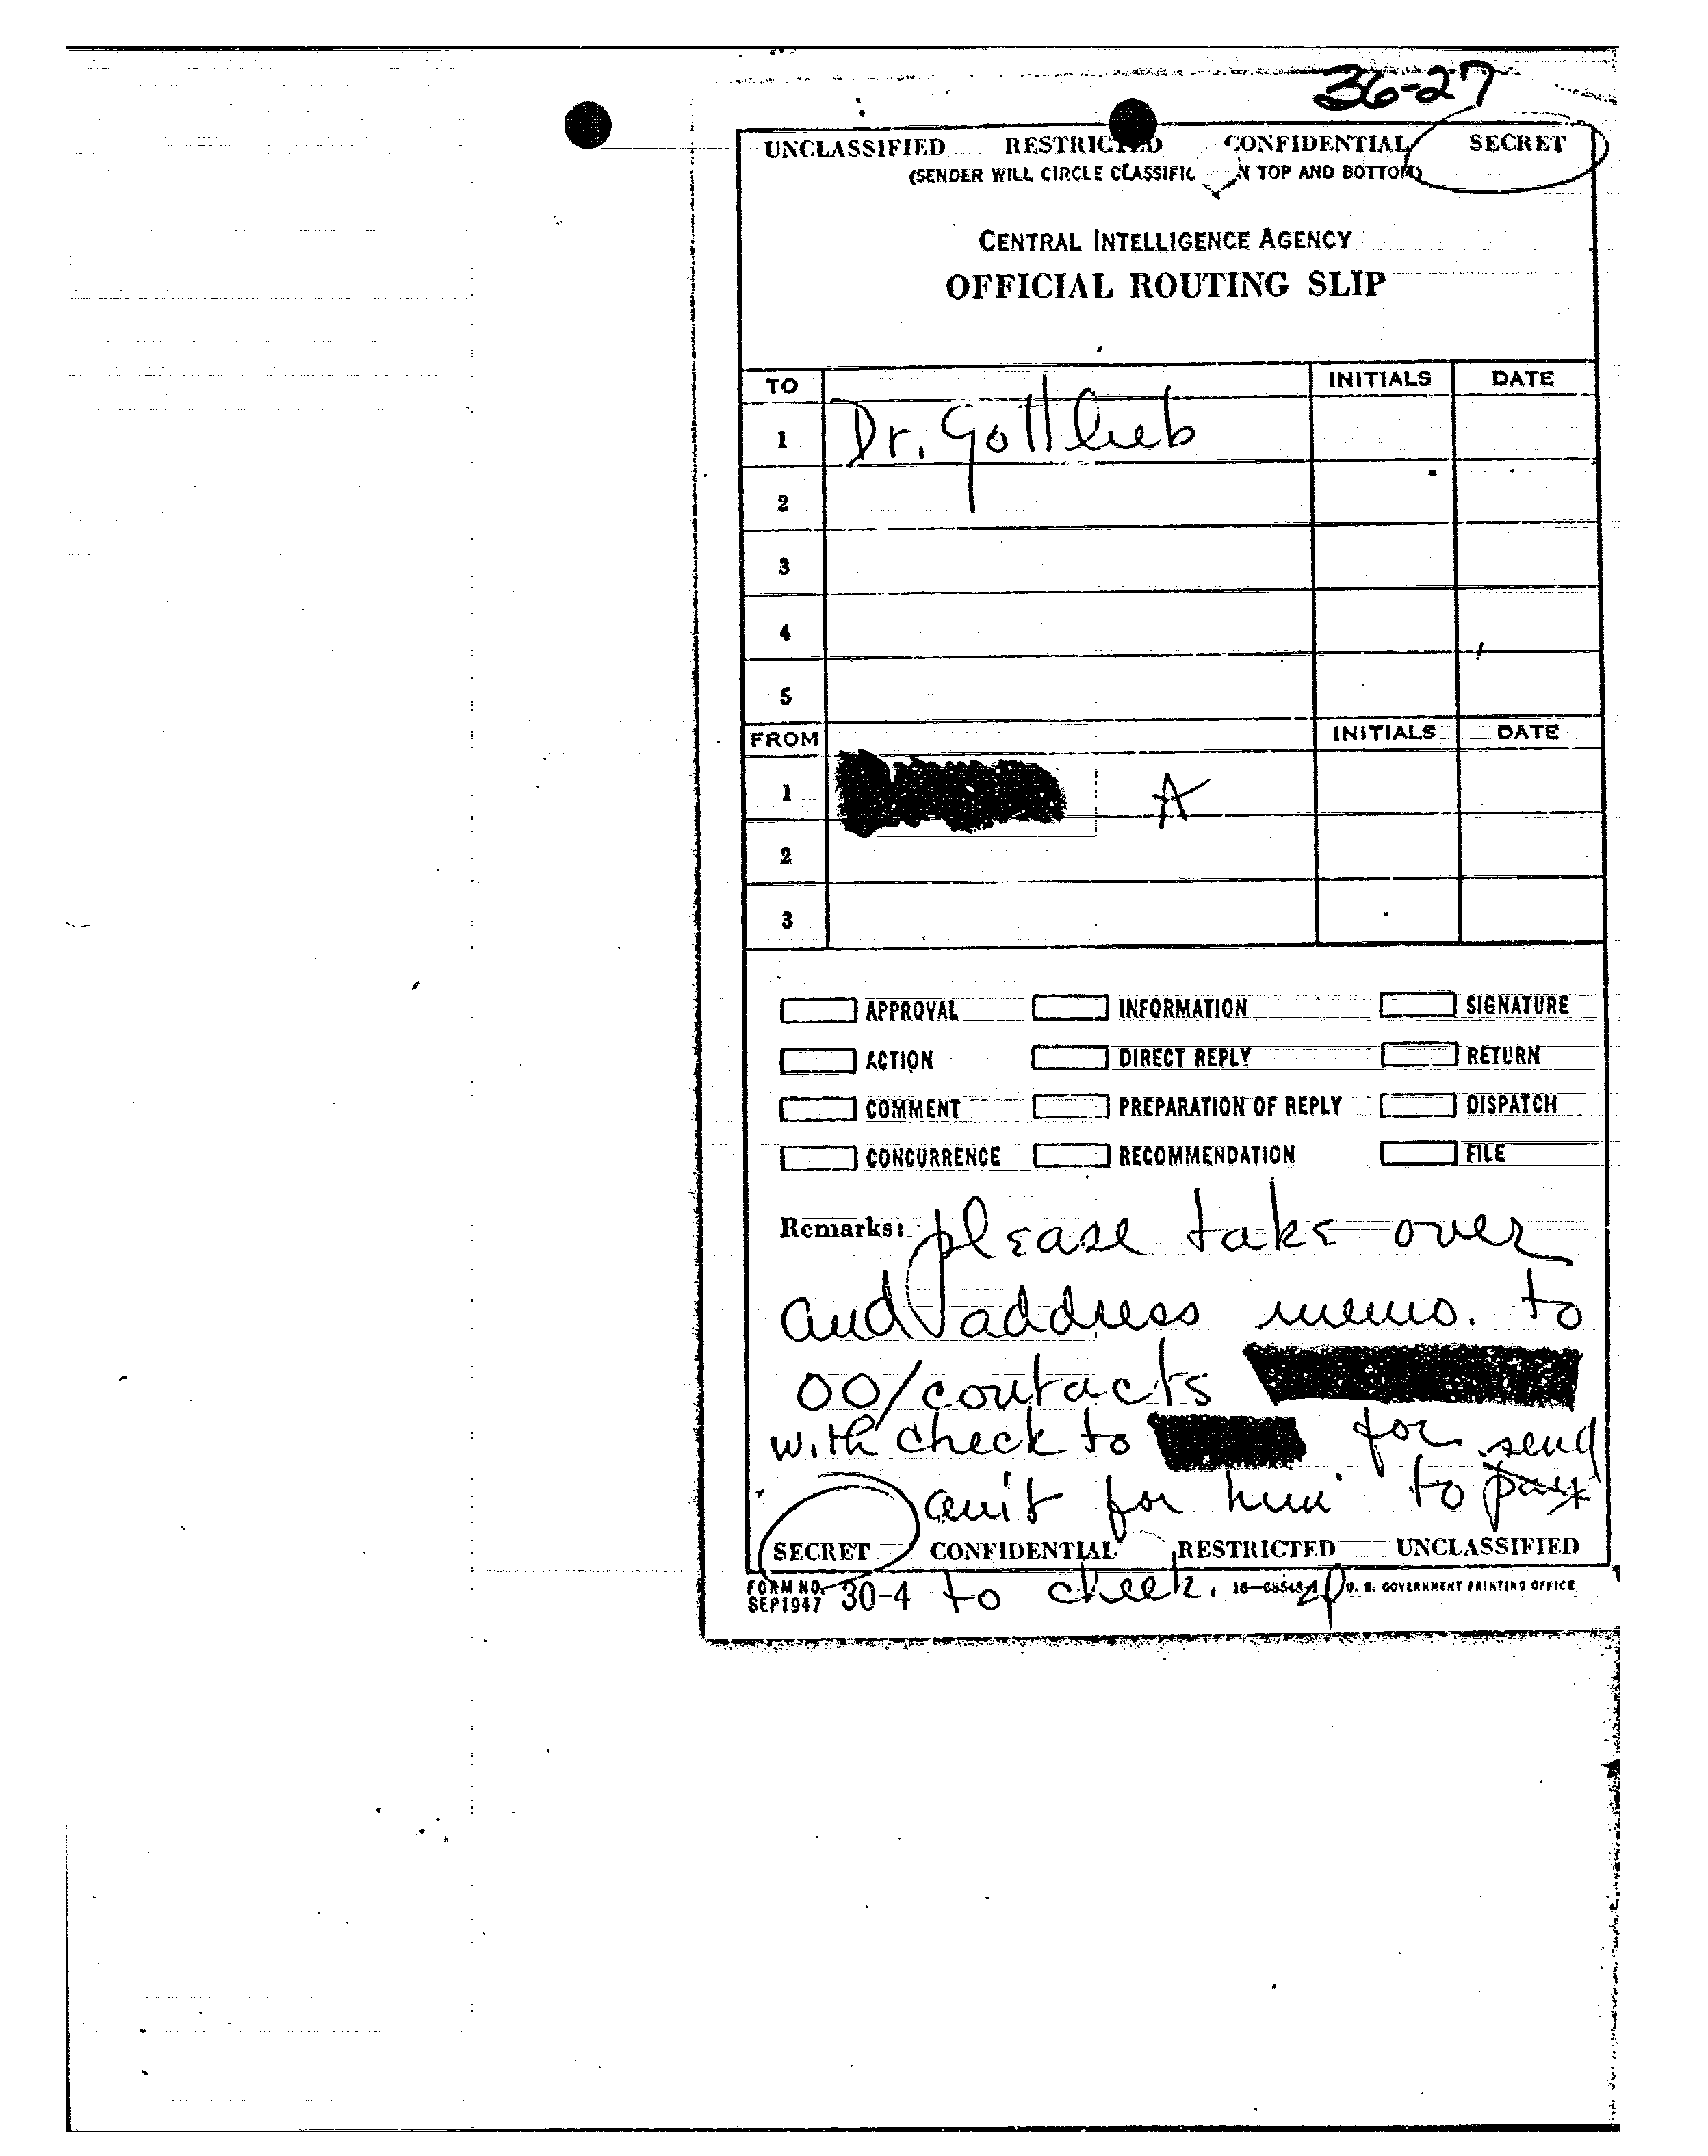 36-27
UNCLASSIFIED RESTRICTED CONFIDENTIAL SECRET
(SENDER WILL CIRCLE CLASSIFIC N TOP AND BOTTOM)
CENTRAL INTELLIGENCE AGENCY
OFFICIAL ROUTING SLIP
TO INITIALS DATE
1 Dr. Gottlieb
2
3
4
5
FROM INITIALS DATE
1 A
2
3
APPROVAL INFORMATION SIGNATURE
ACTION DIRECT REPLY RETURN
COMMENT PREPARATION OF REPLY DISPATCH
CONCURRENCE RECOMMENDATION FILE
Remarks: please take over
and address memo. to
OO/contacts
with check to for send
for him to pay
SECRET CONFIDENTIAL RESTRICTED UNCLASSIFIED
FORM NO. 30-4 to check. U. S. GOVERNMENT PRINTING OFFICE
SEP 1947